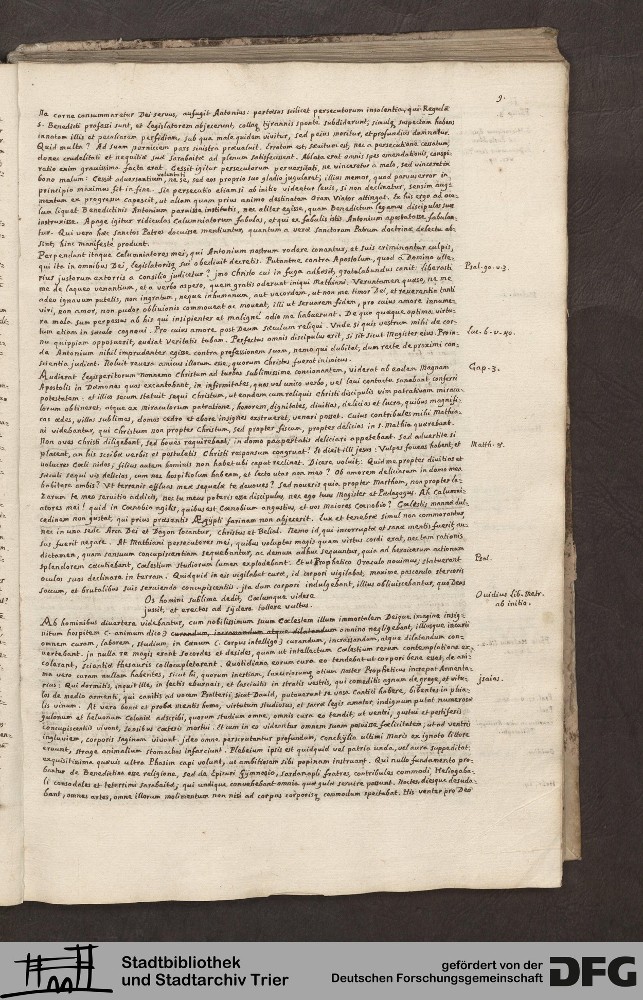 9.
carne consummaretur Dei servus, aufugit Antonius: pertæsus scilicet persecutorum insolentiam, qui Regulā
S. Benedicti professi sunt, et legislatorem abjecerunt, collaq tyrannis sponte subdiderunt; simulq suspectam habens
innatam illis et peculiarem perfidiam, sub qua male quidem vivitur, sed peius moritur, et profundius damnatur.
Quid multa? Ad suam perniciem pars sinistra prævaluit. Iratum est; sævitum est, nec a persecutione cessatum,
donec crudelitati et nequitiæ suæ sarabaitæ ad plenum satisfecissent. Ablata erat omnis spes emendationis, conspi-
ratio enim gravissima facta erat. Cessit igitur persecutorum perversitati, ne vinceretur a malo, sed vinceret in
bono malum: Cessit adversantium voluntati, ne se, sed eos proprio suo gladio jugularet; illius memor, quod parvus error in
principio maximus fit in fine. Sic persecutio etiamsi ab initio videatur levis, si non declinatur, sensim aug-
mentum ex progressu capescit, ut aliam quam primo destinatam Oram Viator attingat. Ex his ergo ad ocu-
lum liquet Benedictinis Antonium parvisse institutis, nec aliter egisse, quam Benedictum legamus discipulos suos
instruxisse. Apage igitur ridiculas Calumniatorum fabulas, et qui ex fabulis istis Antonium apostatasse fabulan-
tur. Qui vero hæc sanctos Patres docuisse mentiuntur, quantum a vera Sanctorum Patrum doctrina delecti ab-
sint, hinc manifeste produnt.
Perpendant itaque Calumniatores mei, qui Antonium nostrum rodere conantur, et suis criminantur culpis,
qui ita in omnibus Dei, legislatorisq sui obedivit decretis. Putantne contra Apostolum, quod a Domino ulte-
rius justorum extorris a consilio judicetur? jmo Christo cui in fuga adhæsit, gratulabundus canit: liberasti
me de laqueo venantium, et a verbo aspero, quem gratis oderunt iniqui Mathiani. Verumtamen quæso, ne me
adeo ignavum putetis, non ingratum, neque inhumanum, aut vacordem, ut non me timor Dei, et reverentia tanti
viri, non amor, non pudor oblivionis commoveat ac moveat, illi ut servarem fidem, pro cuius amore innume-
ra mala sum perpessus ab his qui insipienter et maligne odio me habuerunt. De quo quæque optima virtu-
tum etiam in sæculo cognovi. Pro cuius amore post Deum sæculum reliqui. Unde si quis vestrum mihi de cor-
nu quippiam opposuerit, audiat Veritatis tubam. Perfectus omnis discipulus erit, si sit sicut Magister eius. Proin-
de Antonium nihil imprudenter egisse contra professionem suam, nemo qui dubitat, dum recte de proximi con-
scientia judicat. Noluit revera amicus illorum esse, quorum Christus fuerat inimicus.
Audierat legisperitorum nonnemo Christum ad turbas sublimissime concionantem, viderat ab eodem Magnam
Apostolis in Dæmonas quos excantabant, in infirmitates, quas vel unico verbo, vel levi contactu sanabant conferri
potestatem: et illico secum statuit sequi Christum, ut eandem cum reliquis Christi discipulis vim patrativam miracu-
lorum obtineret, atque ex miraculorum patratione, honorum, dignitates, divitias, delicias et lucra, quibus magnifi-
cas ædes, villas sublimes, domos cedro et ebore insignes extrueret, venari posset. Cuius contribules mihi Mathia-
ni videbantur, qui Christum non propter Christum, sed propter fiscum, propter delicias in S. Mathia quærebant.
Non oves Christi diligebant, sed boves requirebant; in domo paupertatis deliciari appetebant. Sed advertite si
placent, an his scribæ verbis et postulatis Christi responsum congruat? Et dixit illi jesus: Vulpes foveas habent, et
volucres Cœli nidos; filius autem hominis non habet ubi caput reclinet. Dicere voluit: Quid me propter divitias et
sæculi sequi vis delicias, cum nec hospitiolum habeam, et lecto utar non meo? Ob amorem deliciarum in domo mea
habitare ambis? Ut terrenis effluas meæ sequelæ te devoves? Sed noveris quia propter Martham, non propter la-
Zarum te meo servitio addicis, nec tu meus poteris esse discipulus, nec ego tuus Magister et Pædagogus. Ah Calumni-
atores mei! quid in Cœnobio agitis, quibus est Cœnobium angustum, et vos Maiores Cœnobio? Cœlestis mannæ dul-
cedinem non gustat, qui prius præsentis Ægypti farinam non abjecerit. Lux et tenebræ simul non commorantur
nec in una sede Arca Dei et Dagon locantur, Christus et Belial. Nemo id, qui incorruptæ et sanæ mentis fuerit, au-
sus fuerit negare. At Mathiani persecutores mei, quibus voluptas magis quam virtus cordi erat, nec tam rationis
dictamen, quam sensuum concupiscentiam sequebantur, ac demum adhuc sequuntur, quia ad heroicarum actionum
splendorem cæcutiebant, cœlestium studiorum lumen explodebant. Et ut Prophetico Oraculo novimus, statuerunt
oculos suos declinare in terram. Quidquid in eis vigilabat curæ, id corpori vigilabat, maxime pascendo stercoris
saccum, et brutalibus suis serviendo concupiscentiis. jta dum corpori indulgebant, illius obliviscebantur, quo Deus
Os homini sublime dedit, Cœlumque videre
jussit, et erectos ad sydera tollere vultus.
Ab hominibus divertere videbantur, cum nobilissimum suum Cœlestem illum immortalem Deique imagine insig-
nitum hospitem (: animum dico :) curandum, incrassandum atque dilatandum omnino negligebant, illiusque, incuria
omnem curam, laborem, studium, in Cœnum (: Corpus intelligo :) curandum, incrassandum, atque dilatandum con-
vertebant. jn nulla re magis erant Socordes et desides, quam ut intellectum Cœlestium rerum contemplatione ex-
colarant, scientiæ thesauris collocupletarent. Quotidiana eorum cura eo tendebat ut corpori bene esset, de ani-
ma vero curam nullam habentes, sicut hi, quorum inertiam, luxuriosumq otium noster Propheticus increpat Armenta-
rius: Qui dormitis, inquit ille, in lectis eburneis, et lascivitis in stratis vestris, qui comeditis agnum de grege, et vitu-
los de medio armenti, qui canitis ad vocem Psalterii, sicut David, putaverunt se vasa Cantici habere, bibentes in phia-
lis vinum. At vero boni et probæ mentis homo, virtutum studiosus, et sacræ legis amator, indignum putat numeroso
gulonum et heluonum Coloniæ adscribi, quorum studium omne, omnis cura eo tendit, ut ventri, gustui et postferis
concupiscentiis vivant, sensibus cæteris mortui. Et cum in eo videantur omnem suam posuisse fœlicitatem, ut ad ventris
ingluviem, corporis saginam vivant. jdeo omne perscrutantur profundum, conchylia ultimi Maris ex ignoto littore
eruunt, strage animalium stomachos infarciunt. Plebeium ipsis est quidquid vel patria unda, vel aura suppeditat,
exquisitissima quævis ultra Phasim capi volunt, ut ambitiosam sibi popinam instruant. Qui nullo fundamento pro-
bantur de Benedictina esse religione, sed de Epicuri Gymnasio, Sardanapli fratres, contribules commodi, Heliogaba-
li consodales et teterrimi Sarabaitæ; qui undique convehebant omnia quæ gulæ servire possunt. Noctes diesque desuda-
bant, omnes artes, omne illorum molimentum non nisi ad corpus corporisq commodum spectabat. His venter pro Deo
Psal. 90. v. 3.
Luc. 6. v. 40.
Cap. 3.
Matth: 8.
Psal.
Ovidius lib. Metr.
ab initio.
jsaias.
Stadtbibliothek
und Stadtarchiv Trier
gefördert von der
Deutschen Forschungsgemeinschaft
DFG